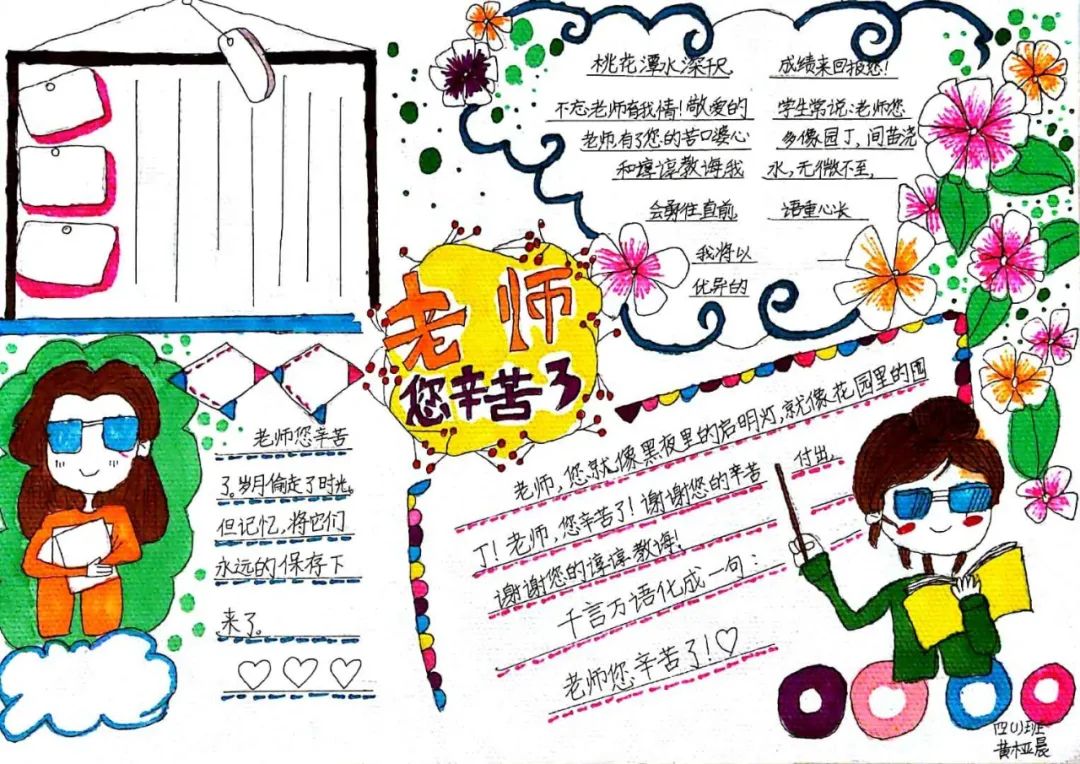 老师
您辛苦了
桃花潭水深千尺
不忘老师有我情！敬爱的
老师有了您的苦口婆心
和谆谆教诲我
会勇往直前
我将以
优异的
成绩来回报您！
学生常说：老师您
多像园丁，间苗浇
水，无微不至，
语重心长
老师您辛苦
了。岁月偷走了时光。
但记忆，将它们
永远的保存下
来了。
老师，您就像黑夜里的启明灯，就像花园里的园
丁！老师，您辛苦了！谢谢您的辛苦付出，
谢谢您的谆谆教诲！
千言万语化成一句：
老师您辛苦了！♡
四(1)班
黄桠晨